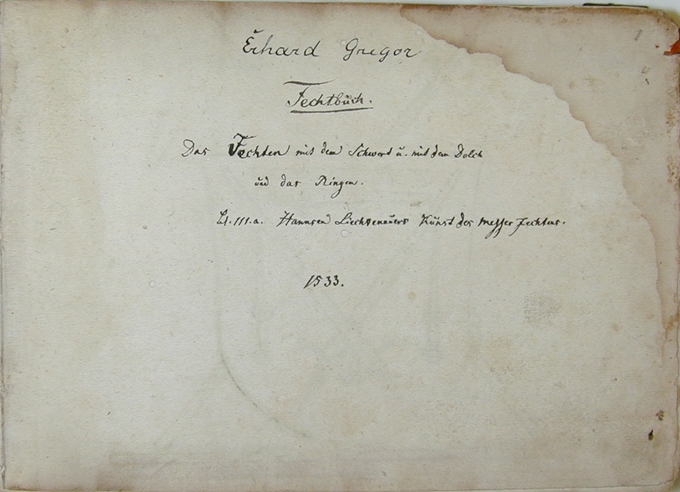 Erhard Gregor
Fechtbuch.
Das Fechten mit dem Schwert u. mit dem Dolch
und das Ringen.
bl. 111. a. Hannsen Liechtenauers Kunst des Messer fechtens.
1533.